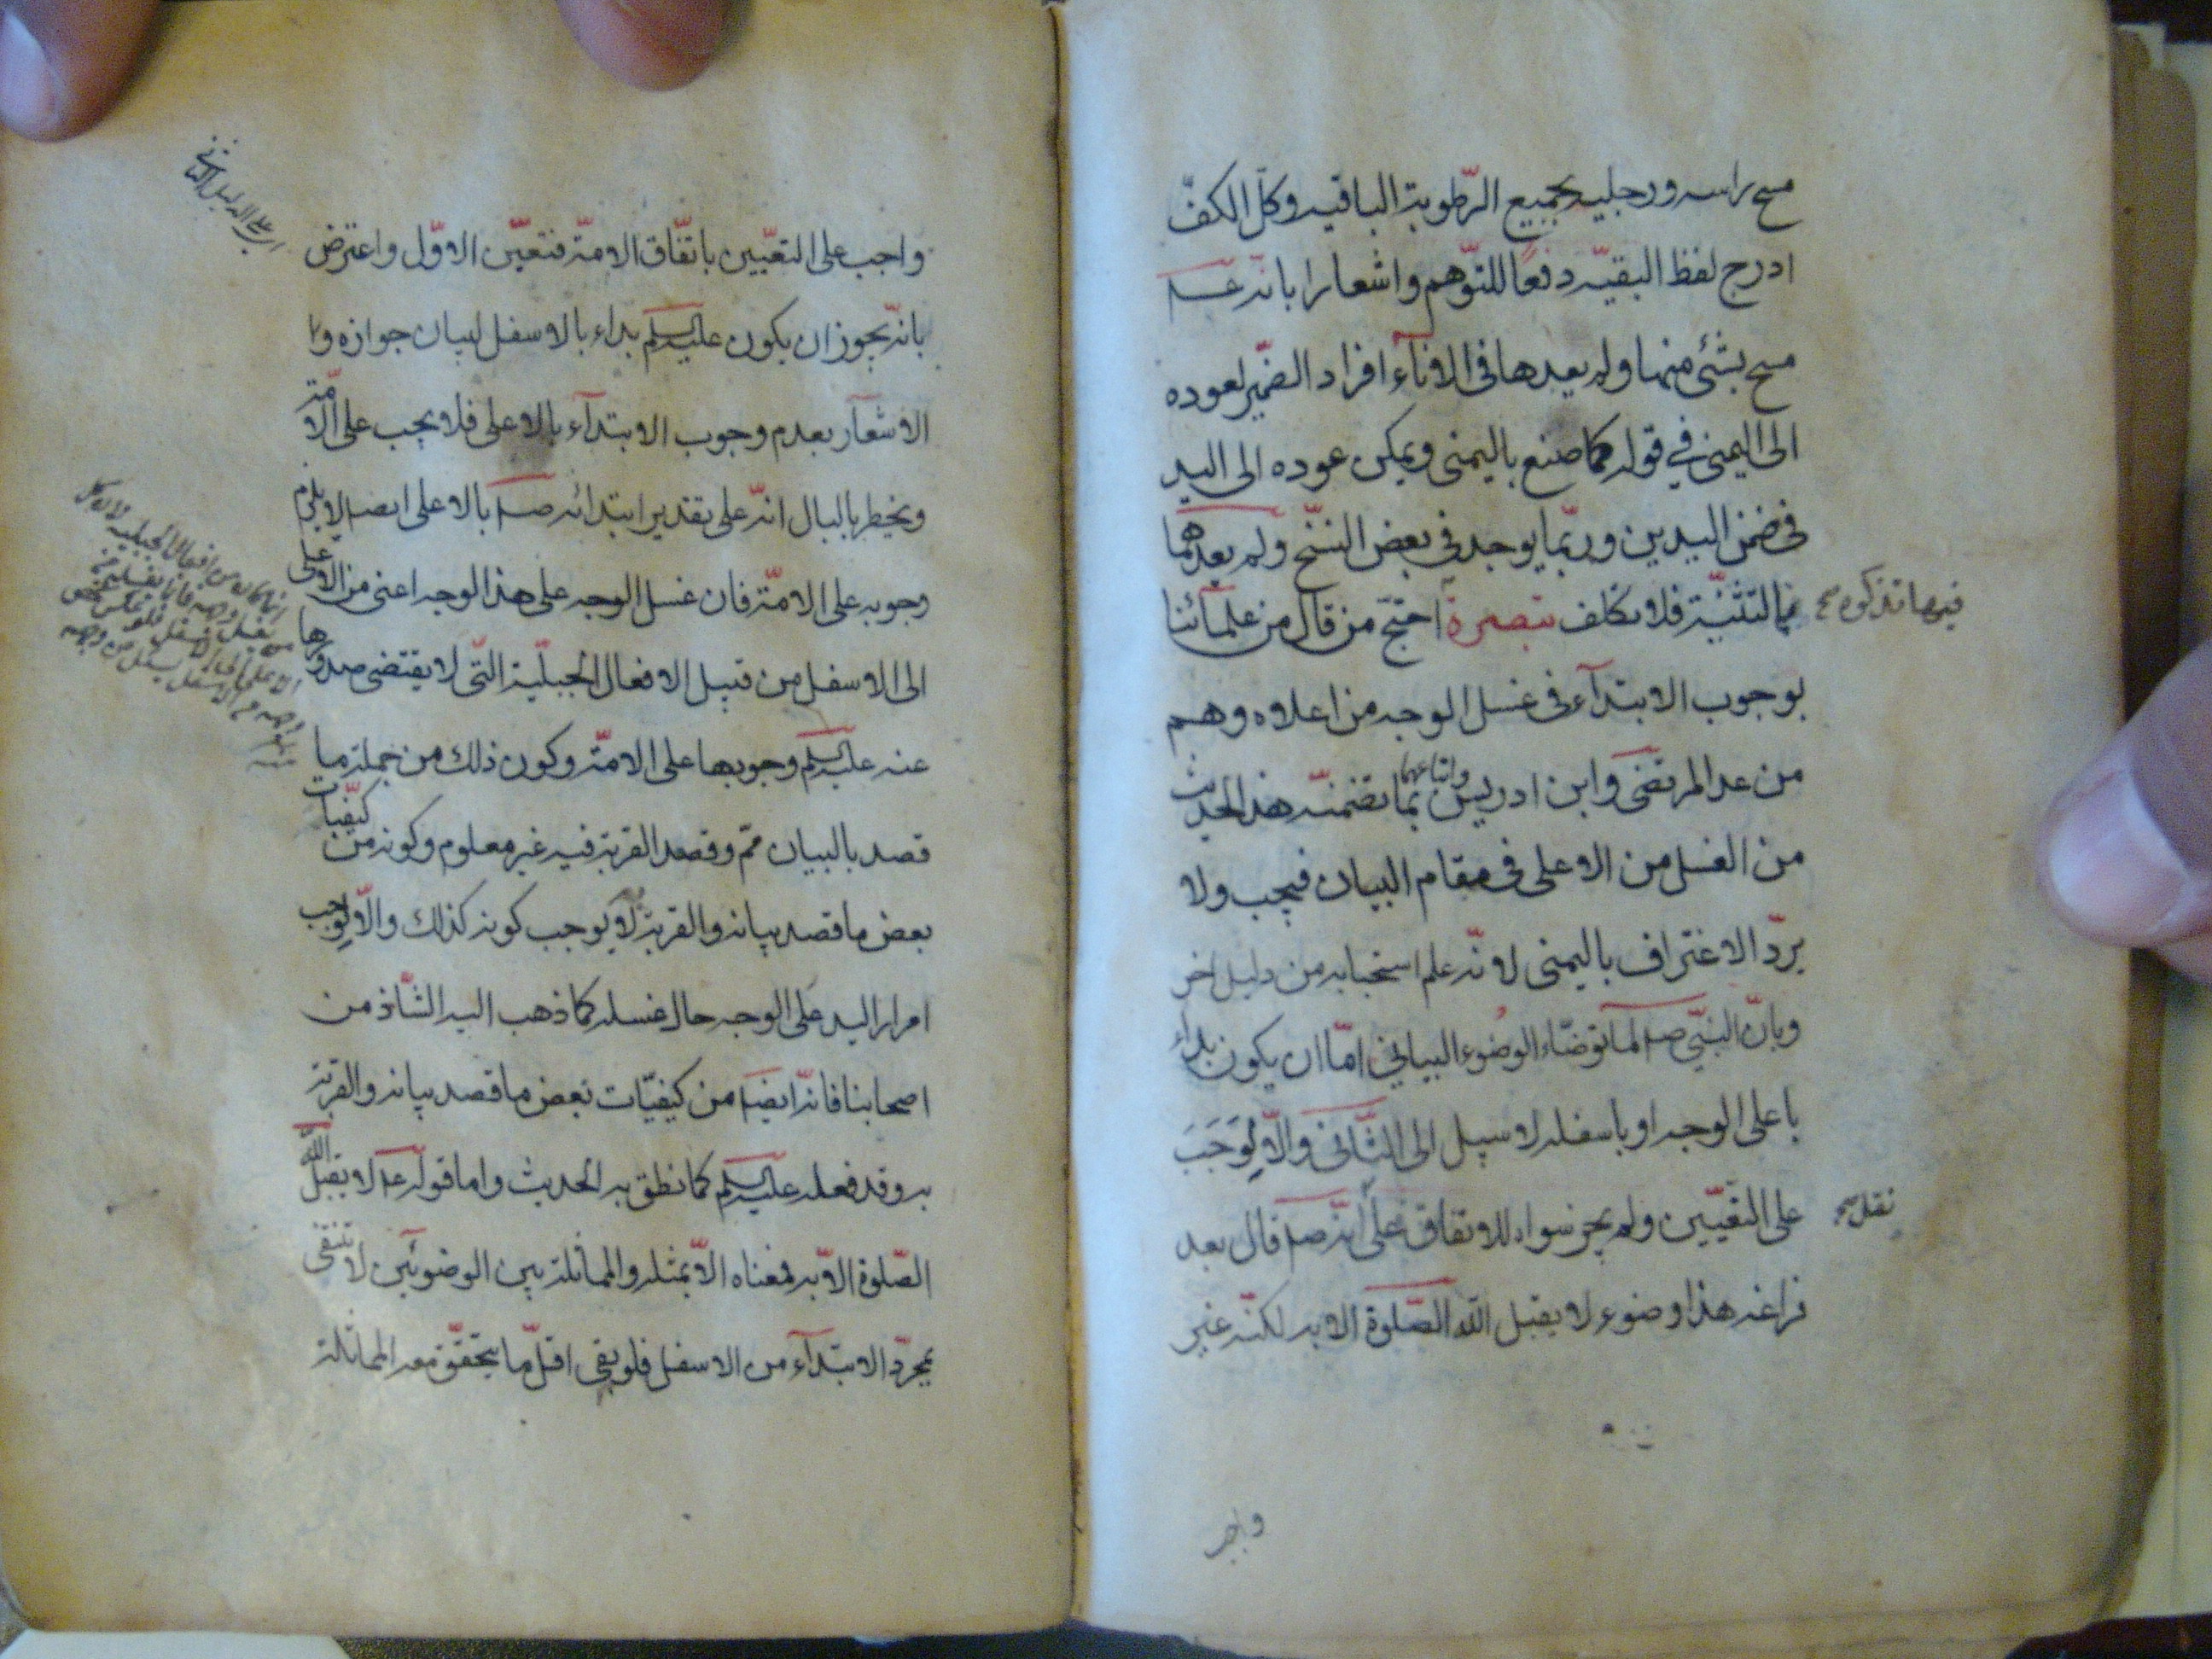 مسح راسه ورجليه بجميع الرّطوبة الباقيه وكلّ الكفّ
ادرج لفظ البقيّه دفعًا للتوّهم واشعارا بانّه عـ
مسح بشئ منها ولم يعدها فى الاناء افراد الضّمير لعوده
الى اليمنى في قوله كما صنع باليمنى ويمكن عوده الى اليد
فى ضمن اليدين وربّما يوجد فى بعض النسّخ ولم يعدهما
بالتثنّية فلا تكلف تبصرة احتجّ من قال من علمائنا
فيها تذكره صح
بوجوب الابتدآء فى غسل الوجه من اعلاه وهم
من عد المرتضى وابن ادريس واتباعهما بما تضمنه هذا الحديث
من الغسل من الاعلى فى مقام البيان فيجب ولا
يردّ الاغتراف باليمنى لانّه علم استحبابه من دليل اخر
وبانّ النبّي صـ لما توضّاء الوضوء البيانى امّا ان يكون بداء
باعلى الوجه او باسفله لا سبيل الى الثّانى والّا لوَجَبَ
على التعّيين ولم يجز سواه للاتفاق على انّه صـ قال بعد
نقل صح
فراغه هذا وضوء لا يقبل الله الصّلوة الا به لكنّه غير
واجب
واجب على التعّيين باتفّاق الامّة فتعّيّن الاوّل واعترض
اى على الدليل الثانى
بانّه يجوز ان يكون عليه السلم بداء بالاسفل لبيان جوازه ولا
الاشعار بعدم وجوب الابتدآء بالاعلى فلا يجب على الامّة
ويخطر بالبال انّه على تقدير ابتدائه صـ بالاعلى ايضـ لا يلزم
وجوبه على الامّة فان غسل الوجه على هذا الوجه اعنى من الاعلى
الى الاسفل من قبيل الافعال الجبليّة التّى لا يقتضى صدورها
عنه عليه السلم وجوبها على الامّة وكون ذلك من جملة ما
قصد بالبيان مم وقصد القربة فيه غير معلوم وكونه من كيفيّات
بعض ما قصد بيانه والقربة لا يوجب كونه كذلك والّا لوجب
امرار اليد على الوجه حال غسله كما ذهب اليه الشّاذ من
اصحابنا فانّه ايضـ من كيفيّات بعض ما قصد بيانه والقربة
به وقد فعله عليه السلم كما نطق به الحديث واما قوله عـ لا يقبل الله
الصّلوة الّا به فمعناه الّا بمثله والمماثلة بين الوضوئين لا تنتفى
بمجرّد الابتدآء من الاسفل فلو بقى اقلّ ما يتحقّق معه المماثلة